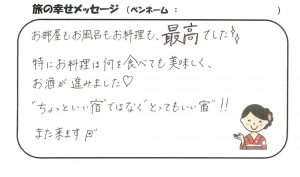 旅の幸せメッセージ (ペンネーム： )
お部屋もお風呂もお料理も、最高でした
特にお料理は何を食べても美味しく、
お酒が進みました♡
"ちょっといい宿"ではなく"とってもいい宿"!!
また来ます